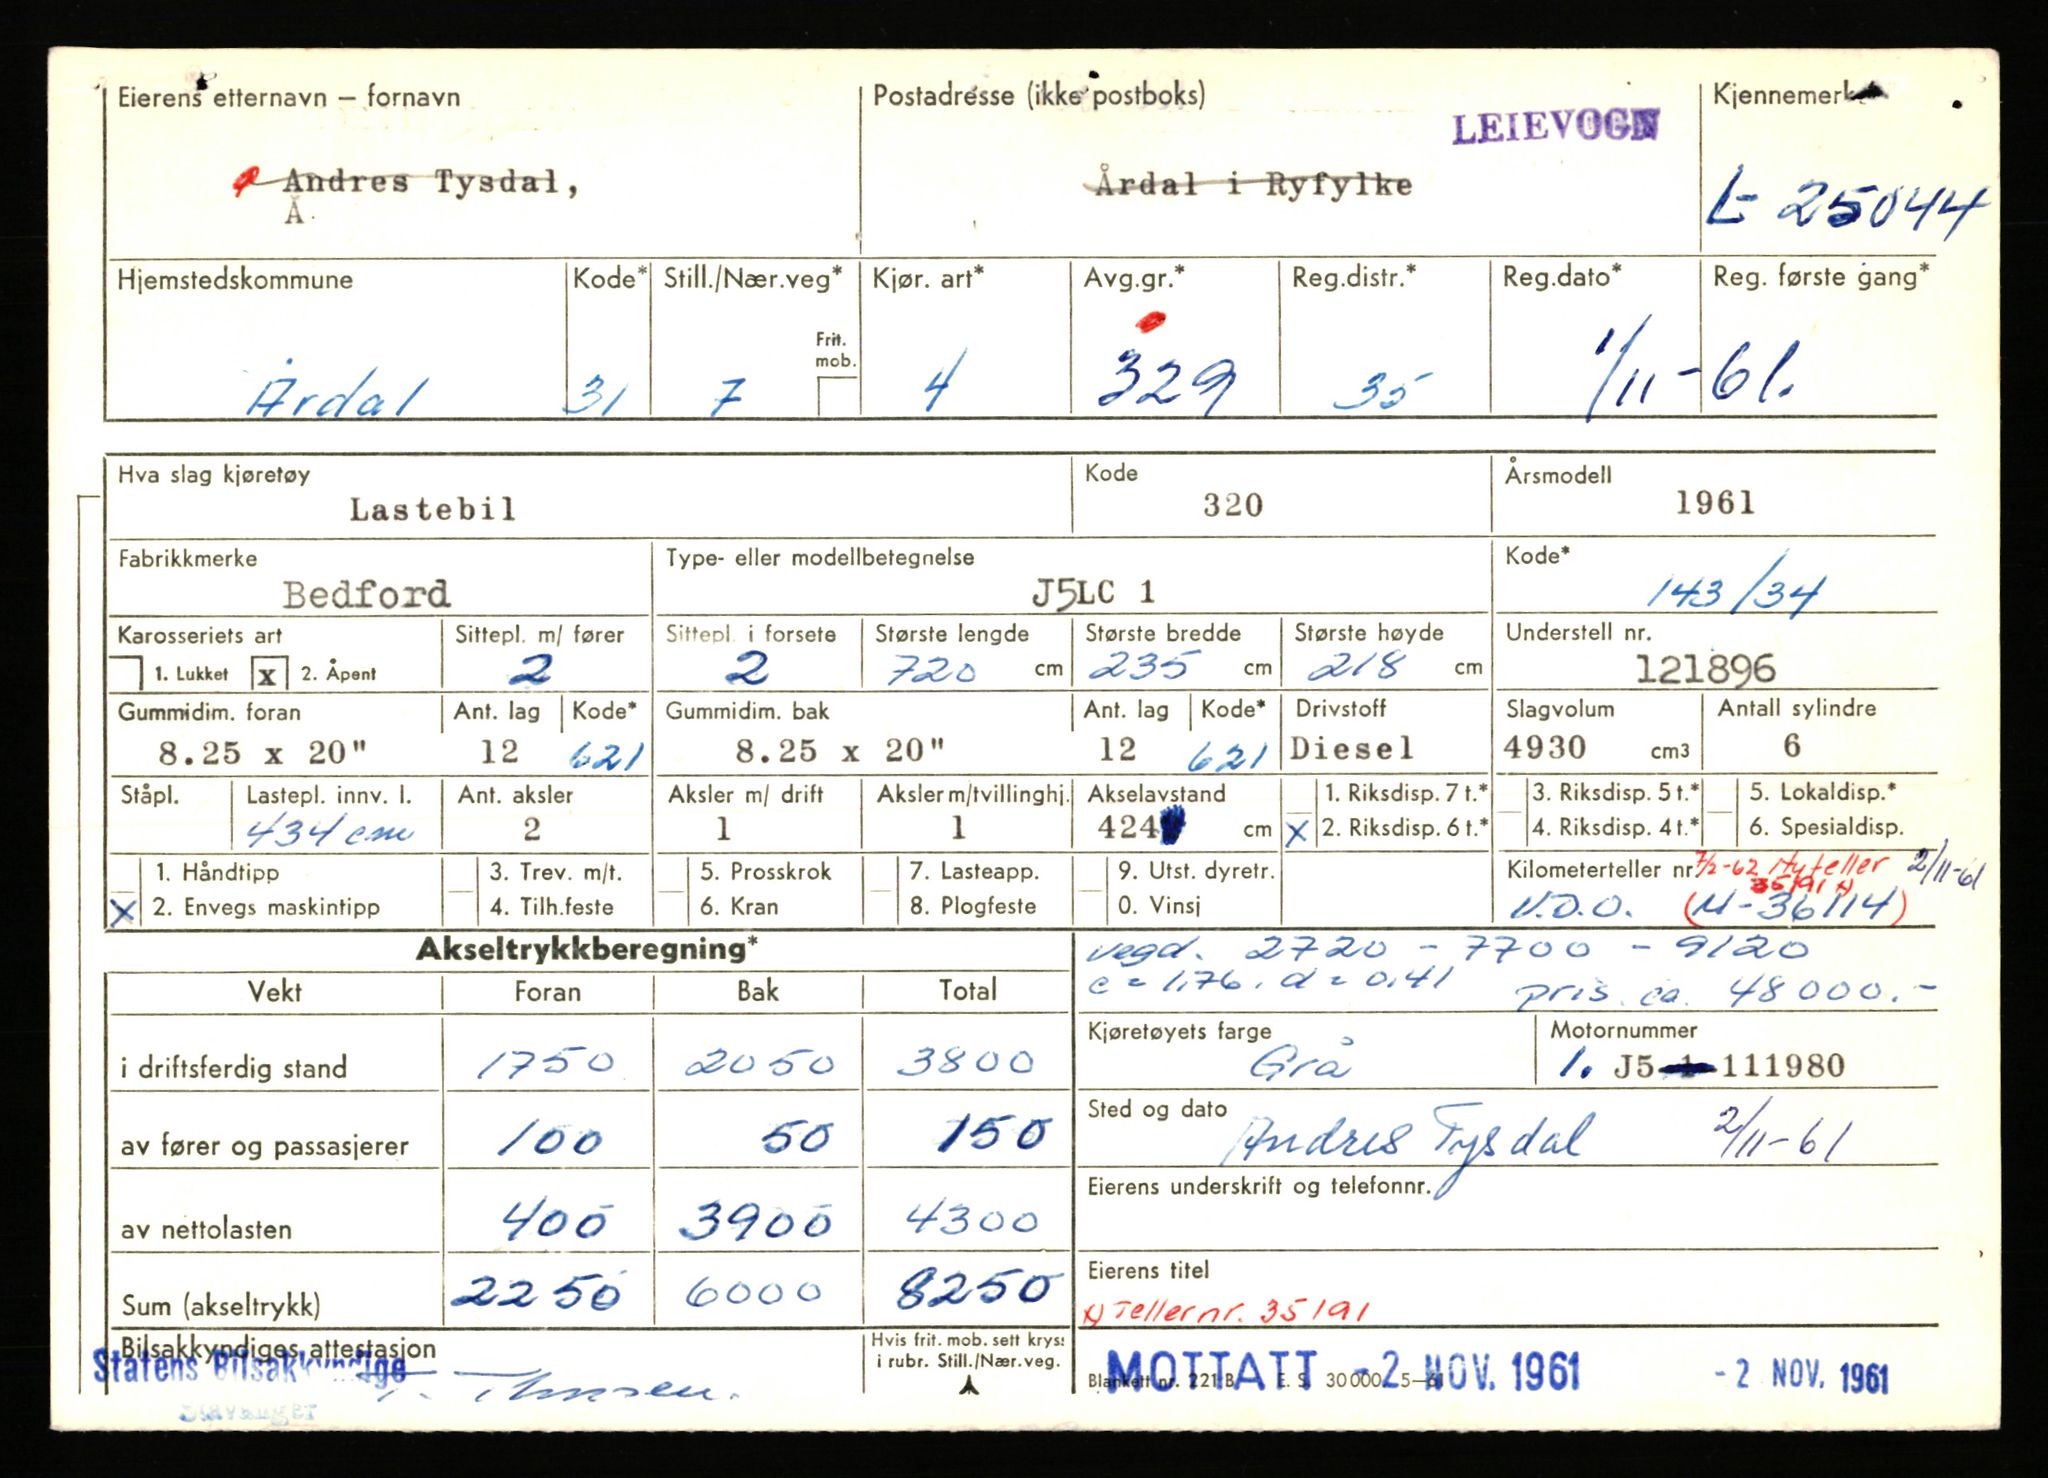 Eierens etternavn – fornavn Postadresse (ikke postboks) Kjennemerke
LEIEVOGN
Andres Tysdal, Årdal i Ryfylke L-25044
Å
Hjemstedskommune Kode* Still./Nær.veg* Kjør. art* Avg.gr.* Reg.distr.* Reg.dato* Reg. første gang*
Frit.
mob.
Årdal 31 7 4 329 35 1/11-61.
Hva slag kjøretøy Kode Årsmodell
Lastebil 320 1961
Fabrikkmerke Type- eller modellbetegnelse Kode*
Bedford J5LC 1 143/34
Karosseriets art Sittepl. m/ fører Sittepl. i forsete Største lengde Største bredde Største høyde Understell nr.
1. Lukket x 2. Åpent 2 2 720 cm 235 cm 218 cm 121896
Gummidim. foran Ant. lag Kode* Gummidim. bak Ant. lag Kode* Drivstoff Slagvolum Antall sylindre
8.25 x 20" 12 621 8.25 x 20" 12 621 Diesel 4930 cm3 6
Ståpl. Lastepl. innv. l. Ant. aksler Aksler m/ drift Aksler m/tvillinghj. Akselavstand 1. Riksdisp. 7 t.* 3. Riksdisp. 5 t.* 5. Lokaldisp.*
434 cm 2 1 1 424 cm x 2. Riksdisp. 6 t.* 4. Riksdisp. 4 t.* 6. Spesialdisp.
1. Håndtipp 3. Trev. m/t. 5. Prosskrok 7. Lasteapp. 9. Utst. dyretr. Kilometerteller nr. 7/2-62 Ny teller 2/11-61
35191 x)
x 2. Envegs maskintipp 4. Tilh.feste 6. Kran 8. Plogfeste 0. Vinsj V.D.O. (M-36114)
Akseltrykkberegning* vegd. 2720 - 7700 - 9120
c = 1,76, d = 0,41 pris ca. 48000.-
Vekt Foran Bak Total
Kjøretøyets farge Motornummer
i driftsferdig stand 1750 2050 3800 Grå 1. J5 111980
Sted og dato
av fører og passasjerer 100 50 150 Andres Tysdal 2/11-61
Eierens underskrift og telefonnr.
av nettolasten 400 3900 4300
Eierens titel
Sum (akseltrykk) 2250 6000 8250
x) Tellernr. 35191
Bilsakkyndiges attestasjon Hvis frit. mob. sett kryss
i rubr. Still./Nær.veg.
Statens Bilsakkyndige
Stavanger
Blankett nr. 221 B E. S. 30 000 5–61
MOTTATT -2 NOV. 1961 -2 NOV. 1961